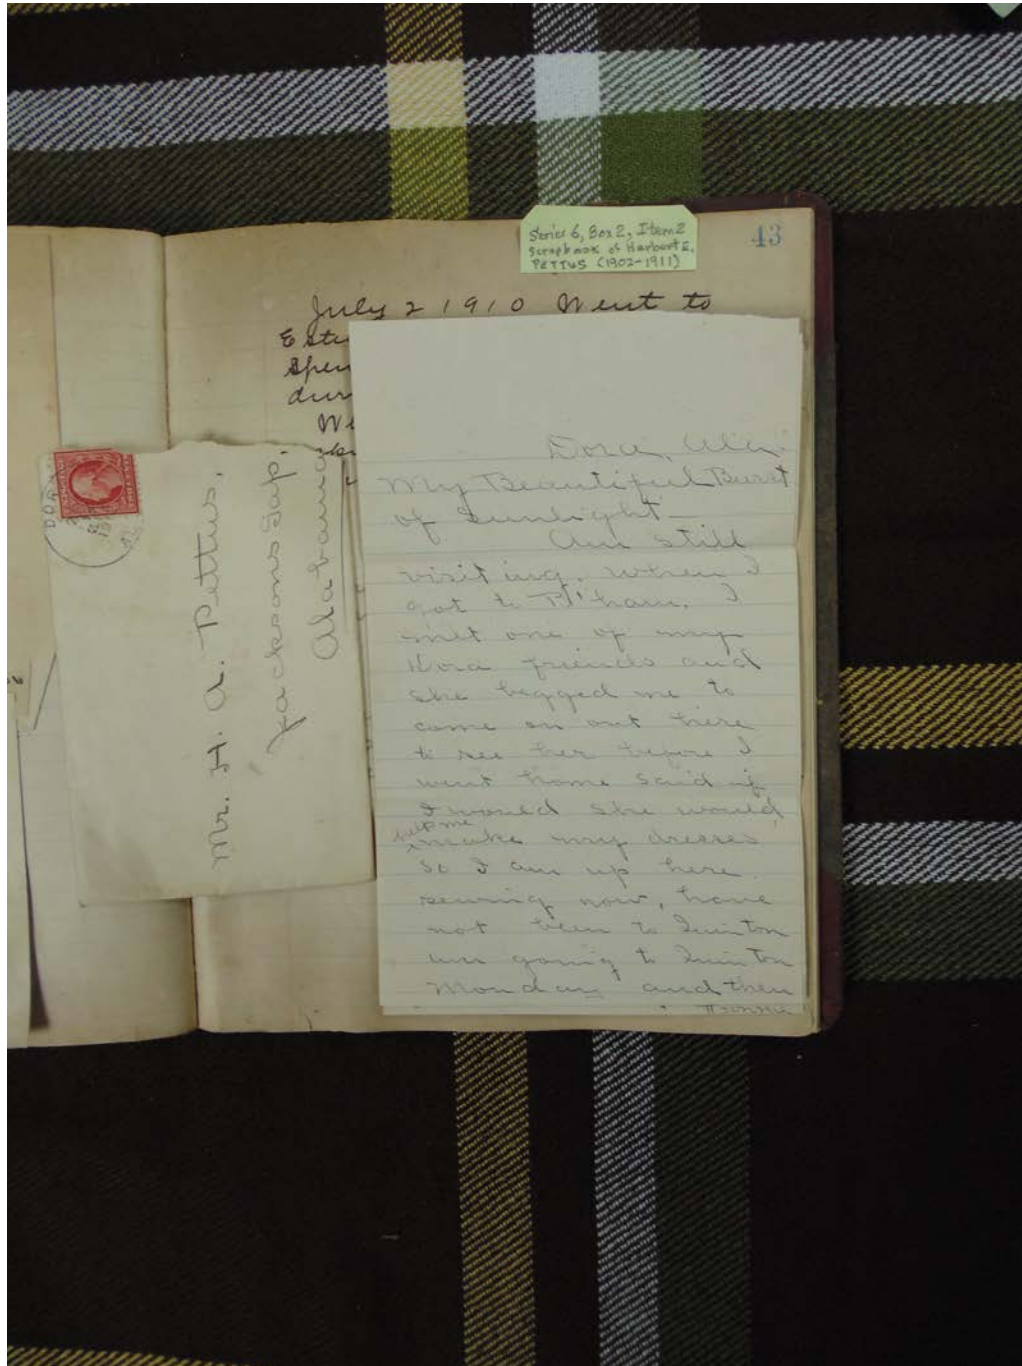 43
Series 6, Box 2, Item 2
Scrapbook of Harbert E.
PETTUS (1902-1911)
July 2 1910 Went to
Mr. H. A. Pettus,
Jacksons Gap,
Alabama
Dora, Ala.
My Beautiful Burst
of Sunlight—
Am still
visiting. When I
got to B'ham. I
met one of my
Dora friends and
she begged me to
come on out here
to see her before I
went home said if
I would she would
help me
make my dresses
So I am up here
sewing now, have
not been to Quinton
am going to Quinton
Monday and then